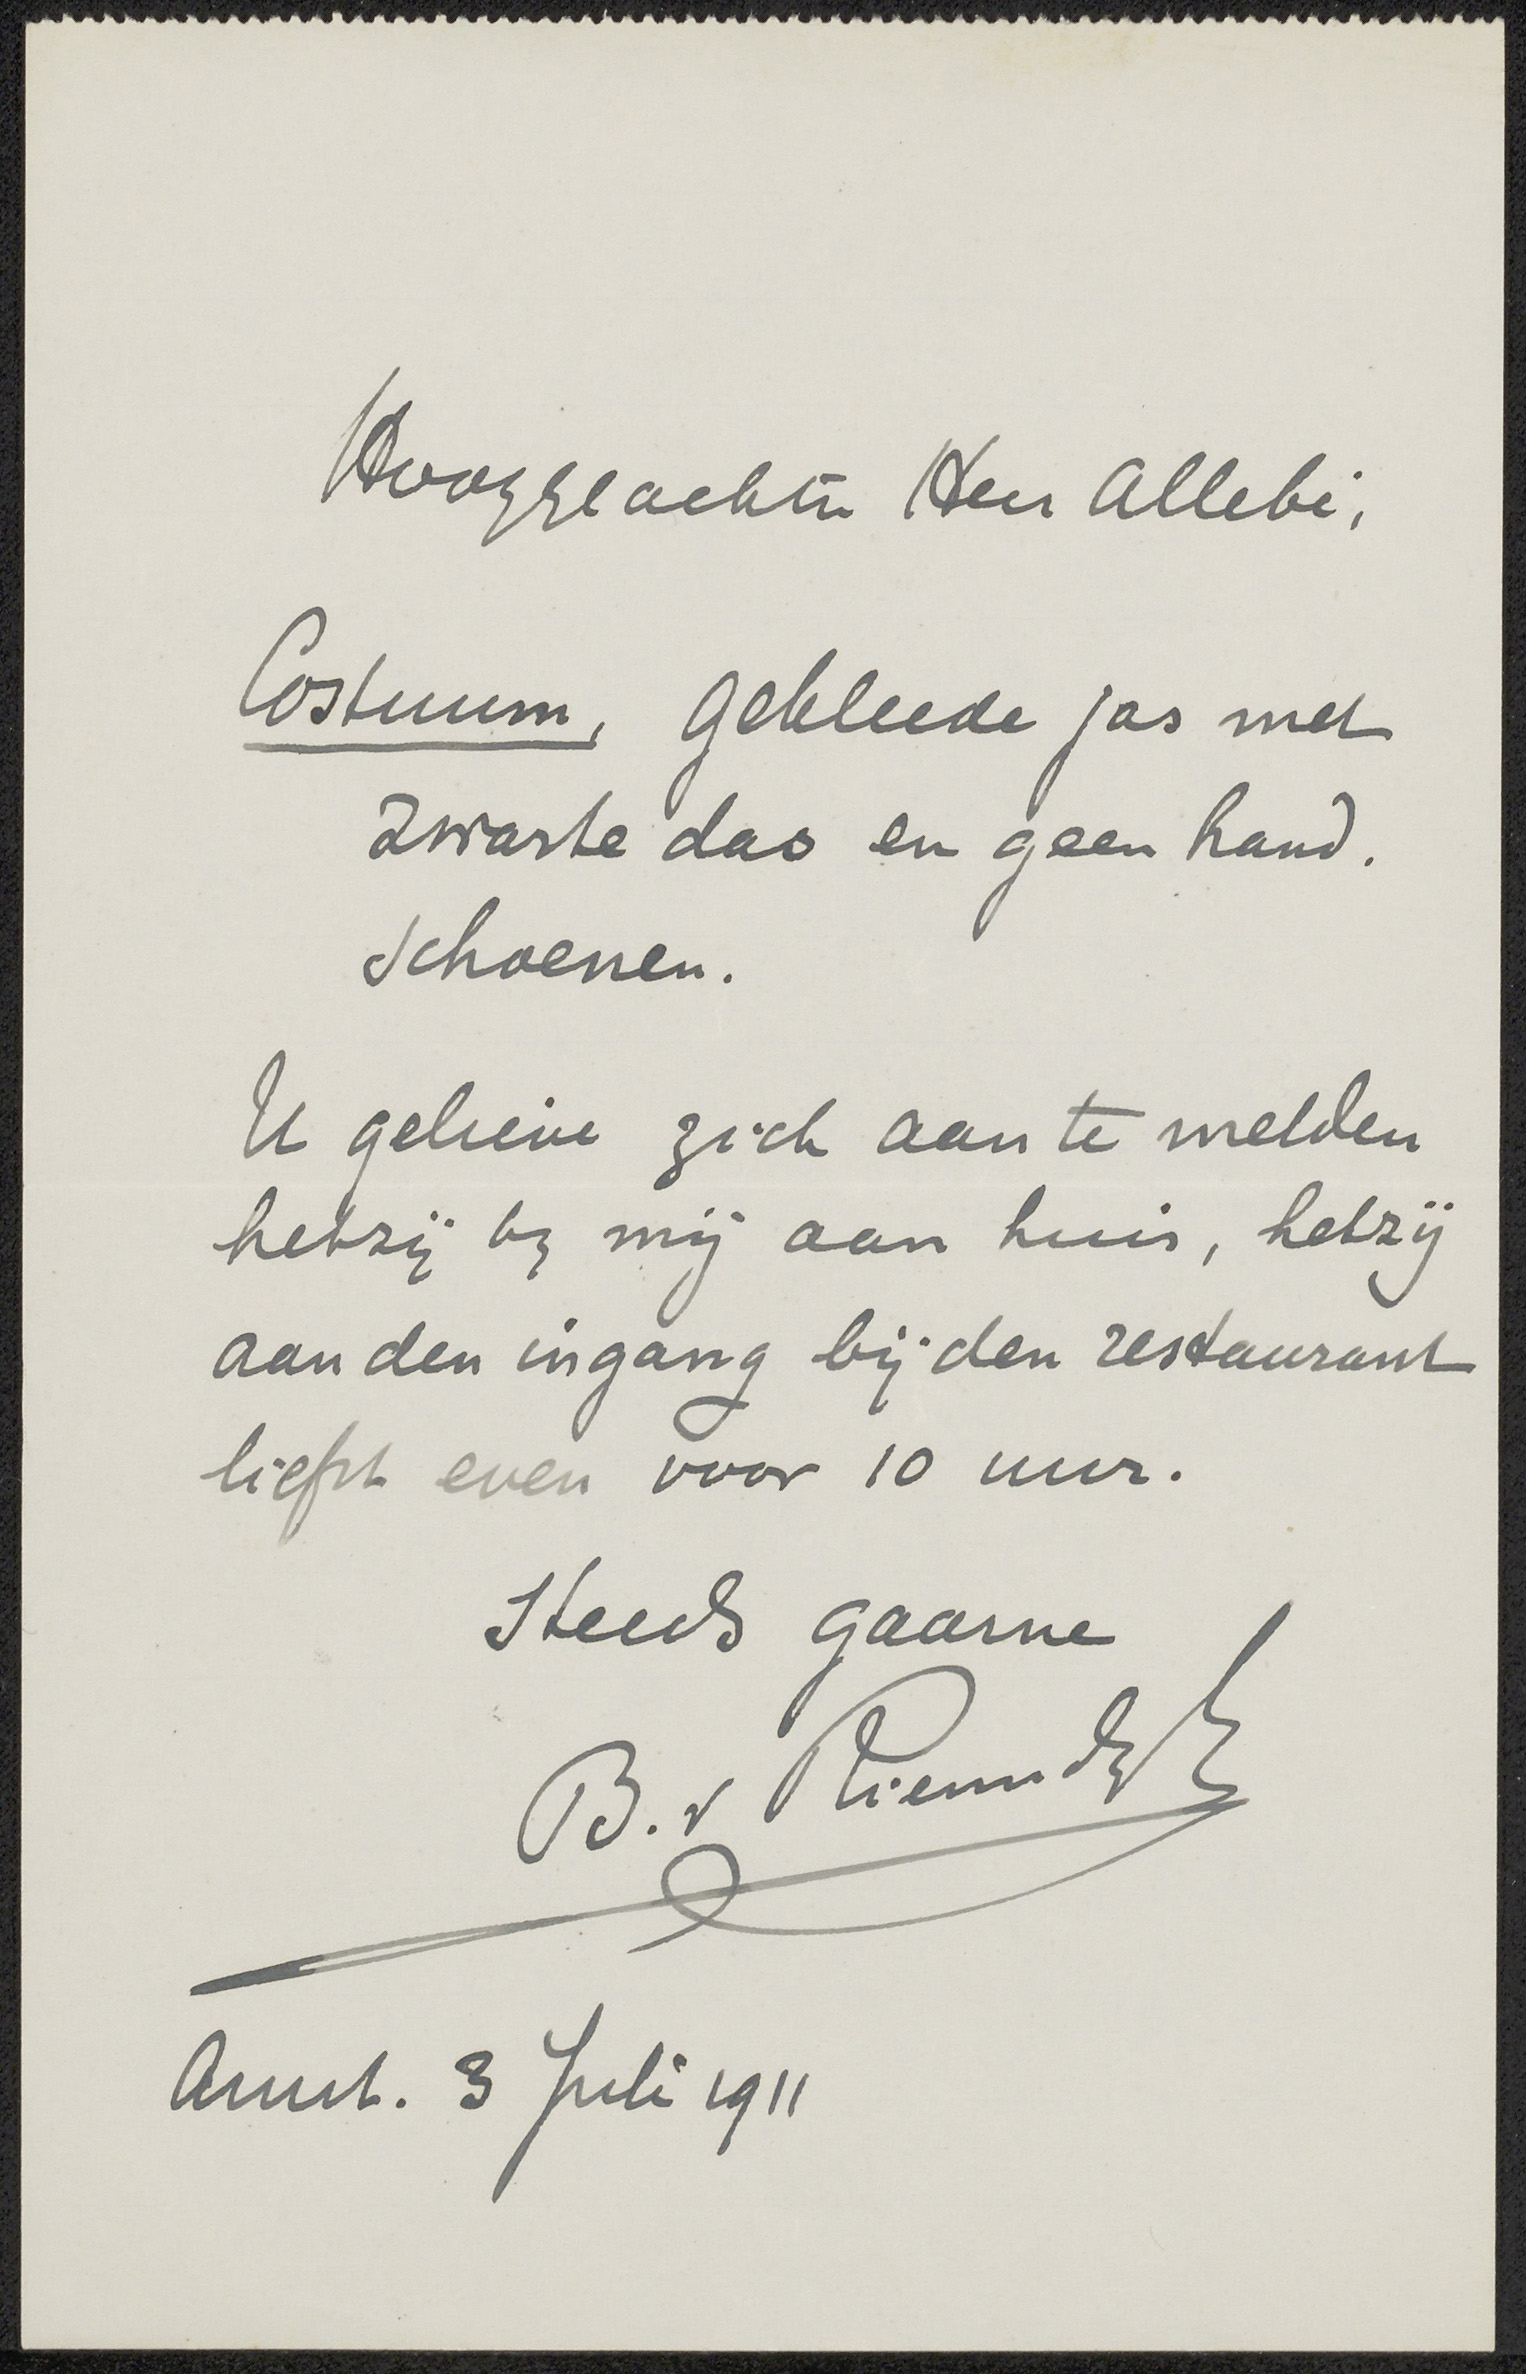 Hooggeachte Heer Allebé,
Costuum, gekleede jas met
zwarte das en geen hand.
schoenen.
U gelieve zich aan te melden
hetzij bij mij aan huis, hetzij
aan den ingang bij den restaurant
liefst even voor 10 uur.
Steeds gaarne
B. v Riemsdijk
Amst. 3 Juli 1911